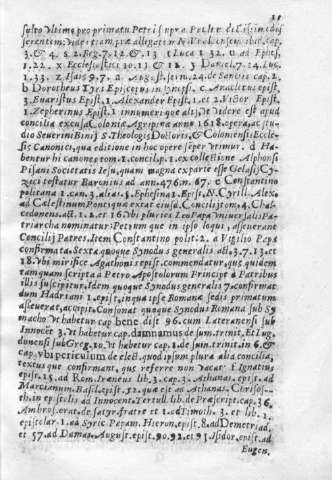 serentem; videatur
3. & 4. & 2. Reg. 7. 12. & 13 Luca 1 32. a ad Ephes.
1. 22. Ecclesiastici 10. 13 & 12. Daniel. 7. 24. Luc.
1. 33. Isai 9. 7. 2 August. serm. 24. de Sanctis cap. 2.
b Dorotheus Tyri Episcopus in Synopsi. c. Anacletus epist.
3. Euaristus Epist. 1. Alexander Epist. 1. et 2. Victor Epist.
1. Zepherinus Epist. 1 innumerique alij, vt videre est apud
concilia excusa Coloniæ Agripinæ anno 1618. opera, ac stu-
dio Seuerini Binij S. Theologis Doctoris, & Coloniensis Eccle-
siæ Canonici, qua editione in hoc opere semper vtimur. d Ha-
bentur hi canones tom. 1. concil. p. 1. ex collectione Alphonsi
Pisani Societatis Iesu, quam magna ex parte esse Gelasij Cy-
ziceni testatur Baronius ad ann. 476. n. 67. e Constantino
politana 1. can. 3. alias. 5. Ephesina 1. Epist. N. Cyrill. Alex.
ad Cælestinum Pontic. qua extat eiusd. Concilij tom. 4. Chal-
cedonens. act. 1. 2. et 16. Vbi pluries Leo Papa vniuersalis Pat-
riarcha nominatur: Petrum que in ipso loqui, asseuerant
Concilij Patres. Item Constantino polit: 2. a Vigilio Papa
confirmata. Sexta quoque Synodus generalis act. 3. 7. 13. et
18. Vbi mirifice Agathonis epist. commendatur, qua quidem
tamquam scripta a Petro Apostolorum Principe à Patribus
illis suscipitur. Idem quoque Synodus generalis 7. confirmat
dum Hadriani 1. epist. in qua ipse Romanæ sedis primatum
asseuerat, accipit. Consonat quoque Synodus Romana sub Sy
macho vt habetur cap bene dist 96. cum Lateranensi sub
Innocēt 3. vt habetur cap. damnamus de sum. trinit. Et Lug
dunensi sub Greg. 10. vt habetur cap. 1 de sum. trinit. in 6. &
cap. vbi periculum de elect. quod ipsum plura alia concilia,
textus que confirmant, quæ referre non vacat f Ignatius
epist. 15. ad Rom. Irenæus lib. 3. cap. 3. Athanas. epist. ad
Marcianum. Basil. epist. 52. qua est ad Athanas. Chrisos-
th. in epistolis ad Innocent. Tertull. lib. de Præscript. cap. 36.
Ambros. orat. de Satyr. fratre et 1. ad Timoth. 3. et lib. 1.
epistolar. 1. ad Syric. Papam. Hieron. epist. 8. ad Demetriad.
et 57. ad Damas. August. epist. 90. 92. et 93 Isidor. epist. ad
Eugen.